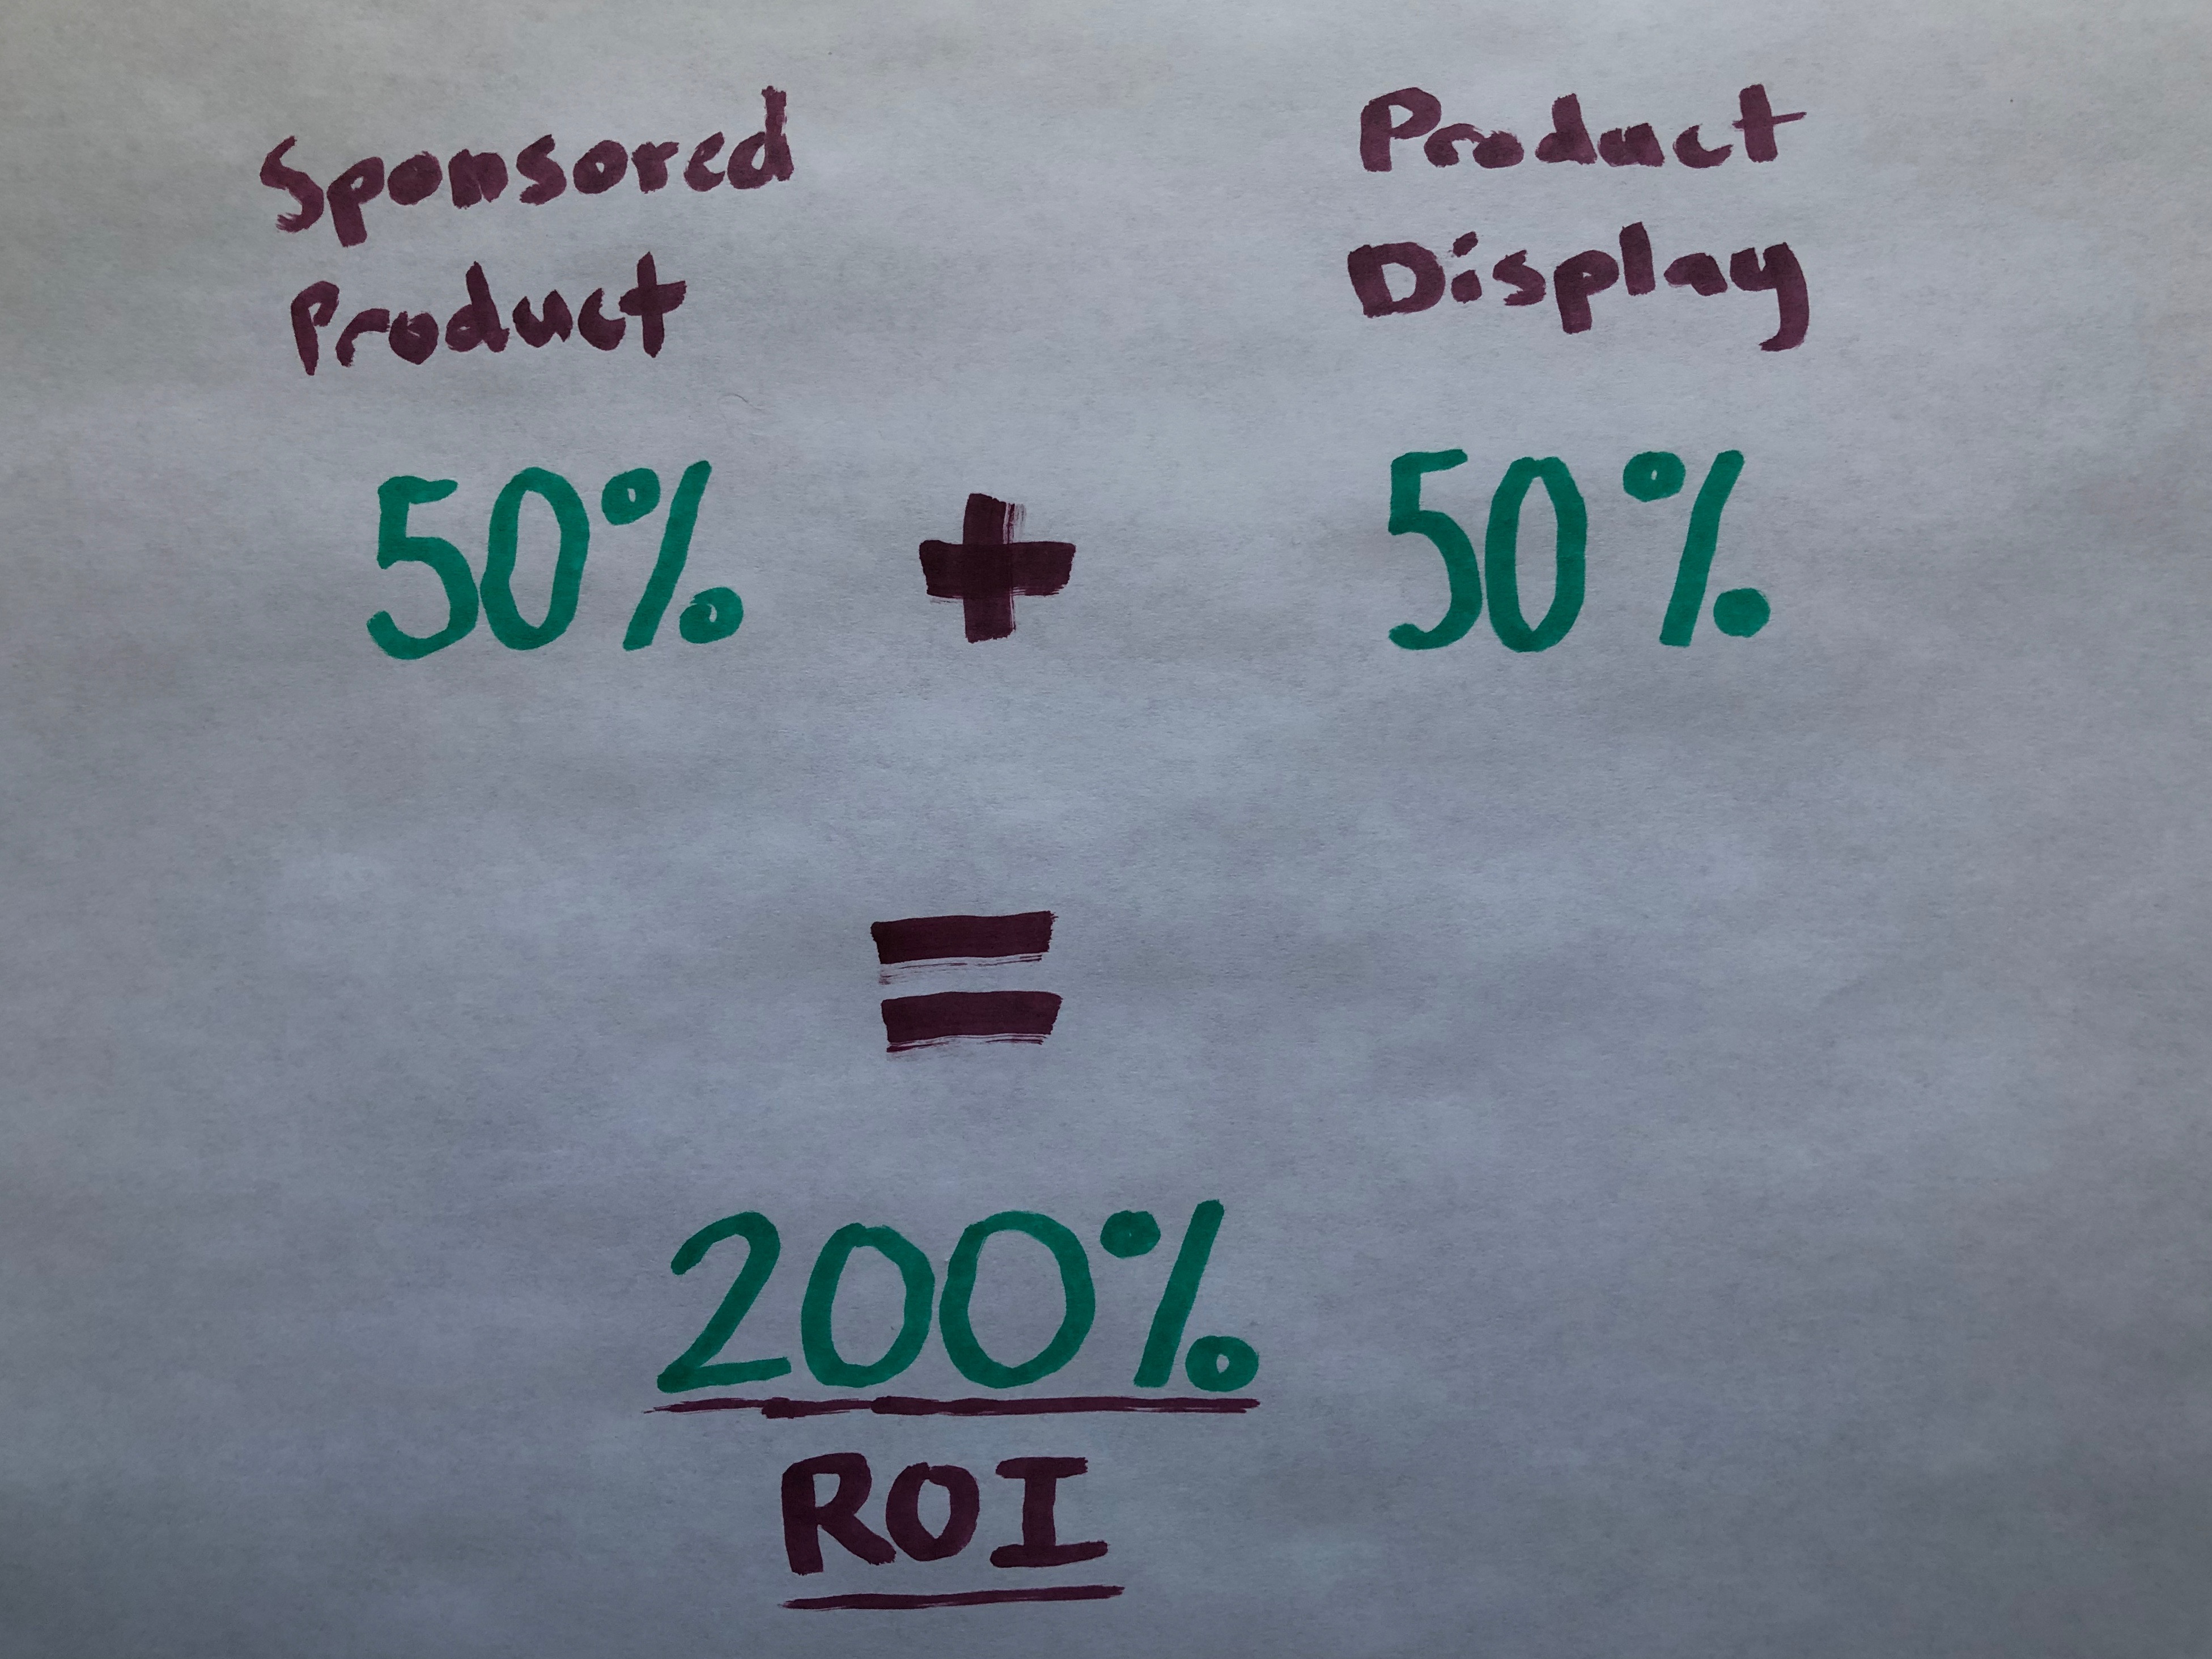 Sponsored
Product
Product
Display
50% + 50%
=
200%
ROI